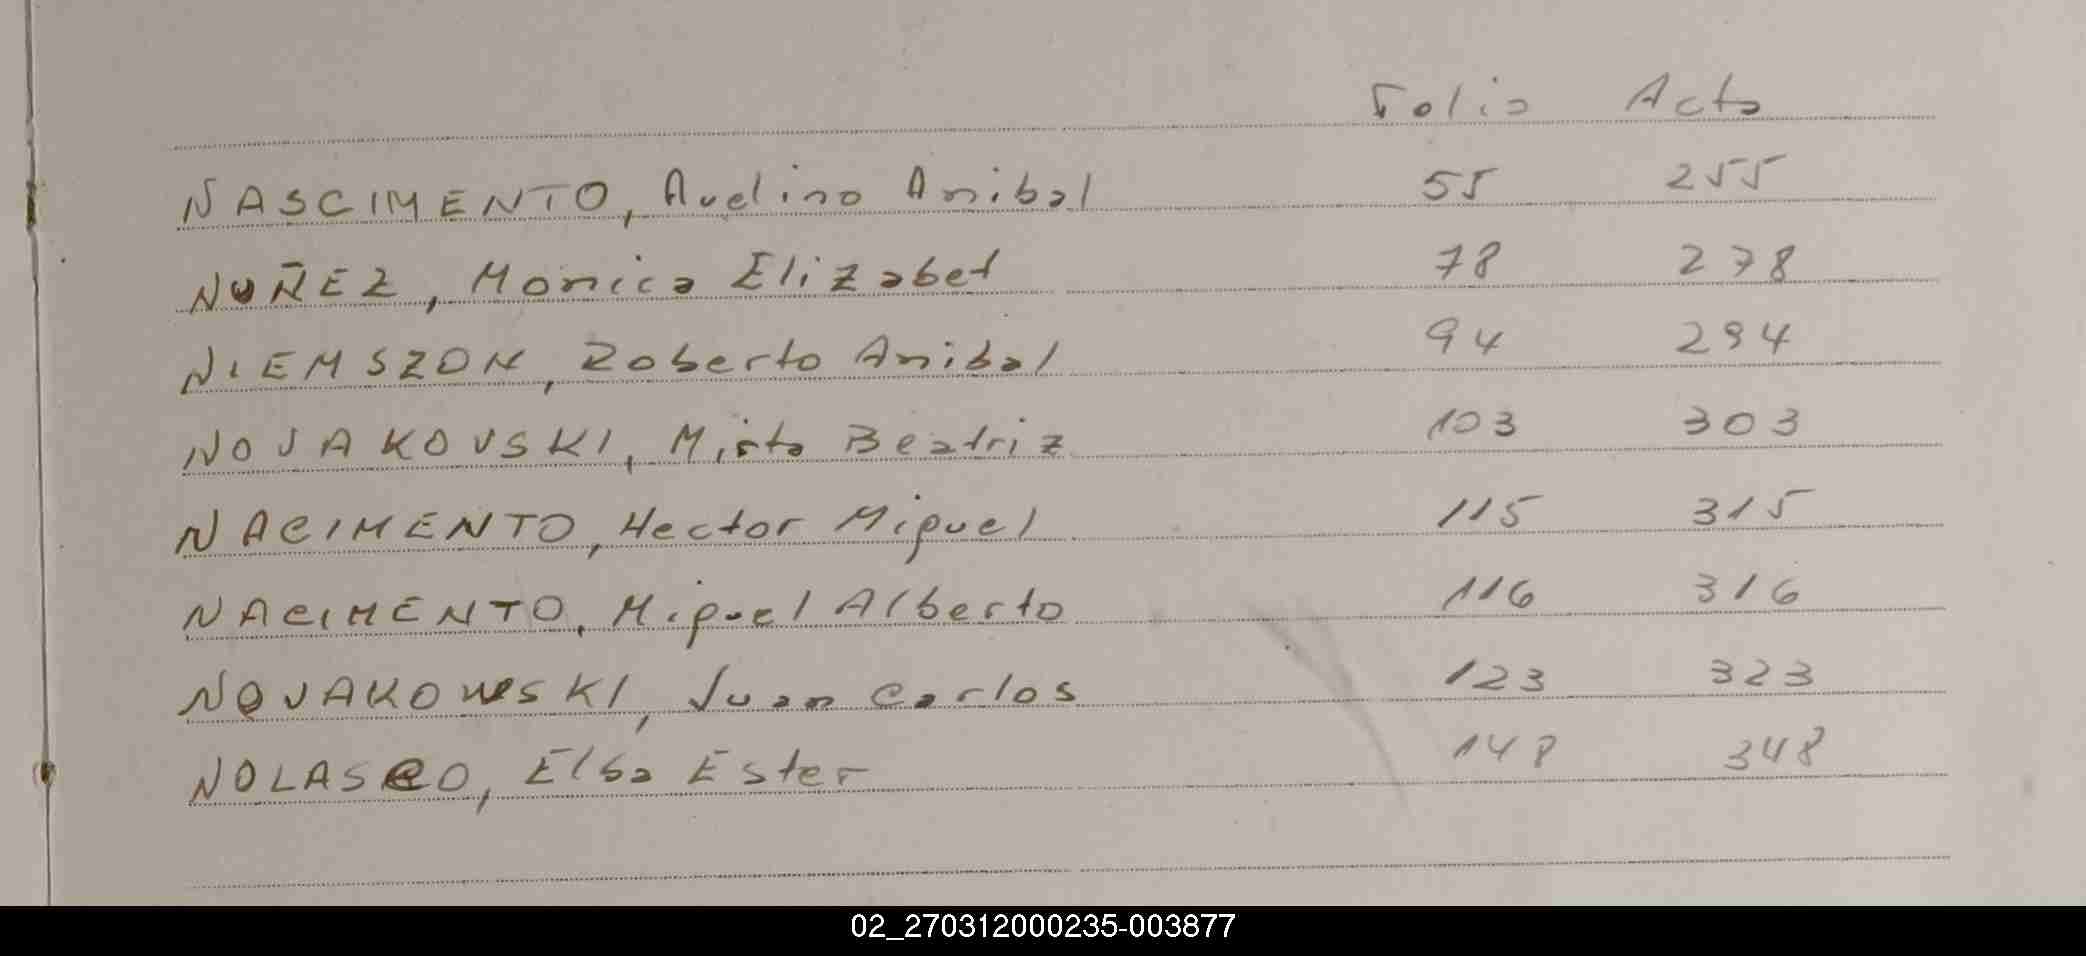 Folio Acta
NASCIMENTO, Avelino Anibal 55 255
NUÑEZ, Monica Elizabet 78 278
NIEMSZON, Roberto Anibal 94 294
NOVAKOVSKI, Mirta Beatriz 103 303
NACIMENTO, Hector Miguel 115 315
NACIMENTO, Miguel Alberto 116 316
NOVAKOWSKI, Juan Carlos 123 323
NOLASCO, Elba Ester 148 348
02_270312000235-003877